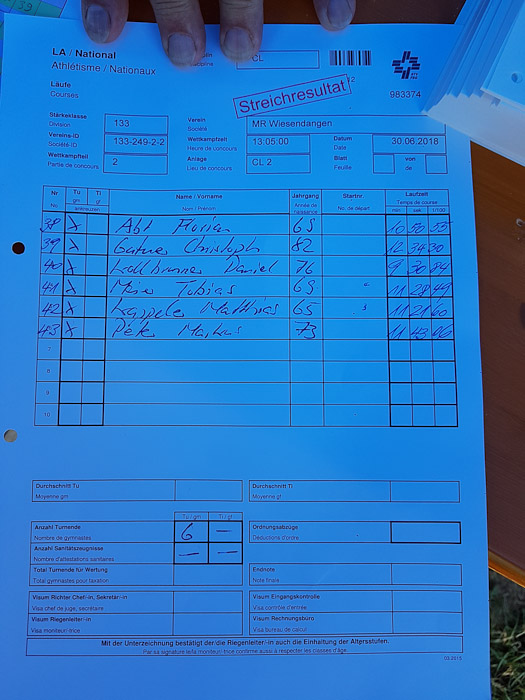 39
LA / National
Athlétisme / Nationaux
CL
12
983374
Läufe
Courses
Streichresultat
Stärkeklasse
Division
133
Verein
Société
MR Wiesendangen
Vereins-ID
Société-ID
133-249-2-2
Wettkampfzeit
Heure de concours
13:05:00
Datum
Date
30.06.2018
Wettkampfteil
Partie de concours
2
Anlage
Lieu de concours
CL 2
Blatt
Feuille
von
de
Nr Tu Ti Name / Vorname Jahrgang Startnr. Laufzeit
No. gm gf Nom / Prénom Année de naissance No. de départ Temps de course
ankreuzen min sek 1/100
38 x Abt Florian 69 10 50 55
39 x Christoph 82 12 34 30
40 x Daniel 76 9 30 84
41 x Tobias 69 11 28 49
42 x Kappeler Matthias 65 11 21 60
43 x Markus 73 11 43 06
7
8
9
10
Durchschnitt Tu
Moyenne gm
Durchschnitt Ti
Moyenne gf
Tu / gm Ti / gf
Anzahl Turnende
Nombre de gymnastes
6 –
Ordnungsabzüge
Déductions d'ordre
Anzahl Sanitätszeugnisse
Nombre d'attestations sanitaires
– –
Total Turnende für Wertung
Total gymnastes pour taxation
Endnote
Note finale
Visum Richter Chef/-in, Sekretär/-in
Visa chef de juge, secrétaire
Visum Eingangskontrolle
Visa contrôle d'entrée
Visum Riegenleiter/-in
Visa moniteur/-trice
Visum Rechnungsbüro
Visa bureau de calcul
Mit der Unterzeichnung bestätigt der/die Riegenleiter/-in auch die Einhaltung der Altersstufen.
Par sa signature le/la moniteur/-trice confirme aussi à respecter les classes d'âge.